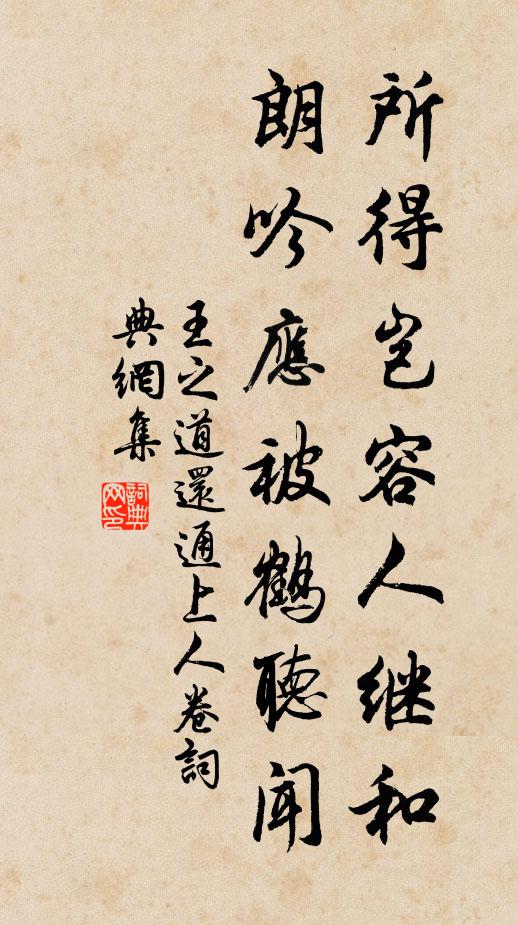 所得岂容人继和
朗吟應被鶴聽闻
王之道還通上人卷詞
典網集
詞典网印